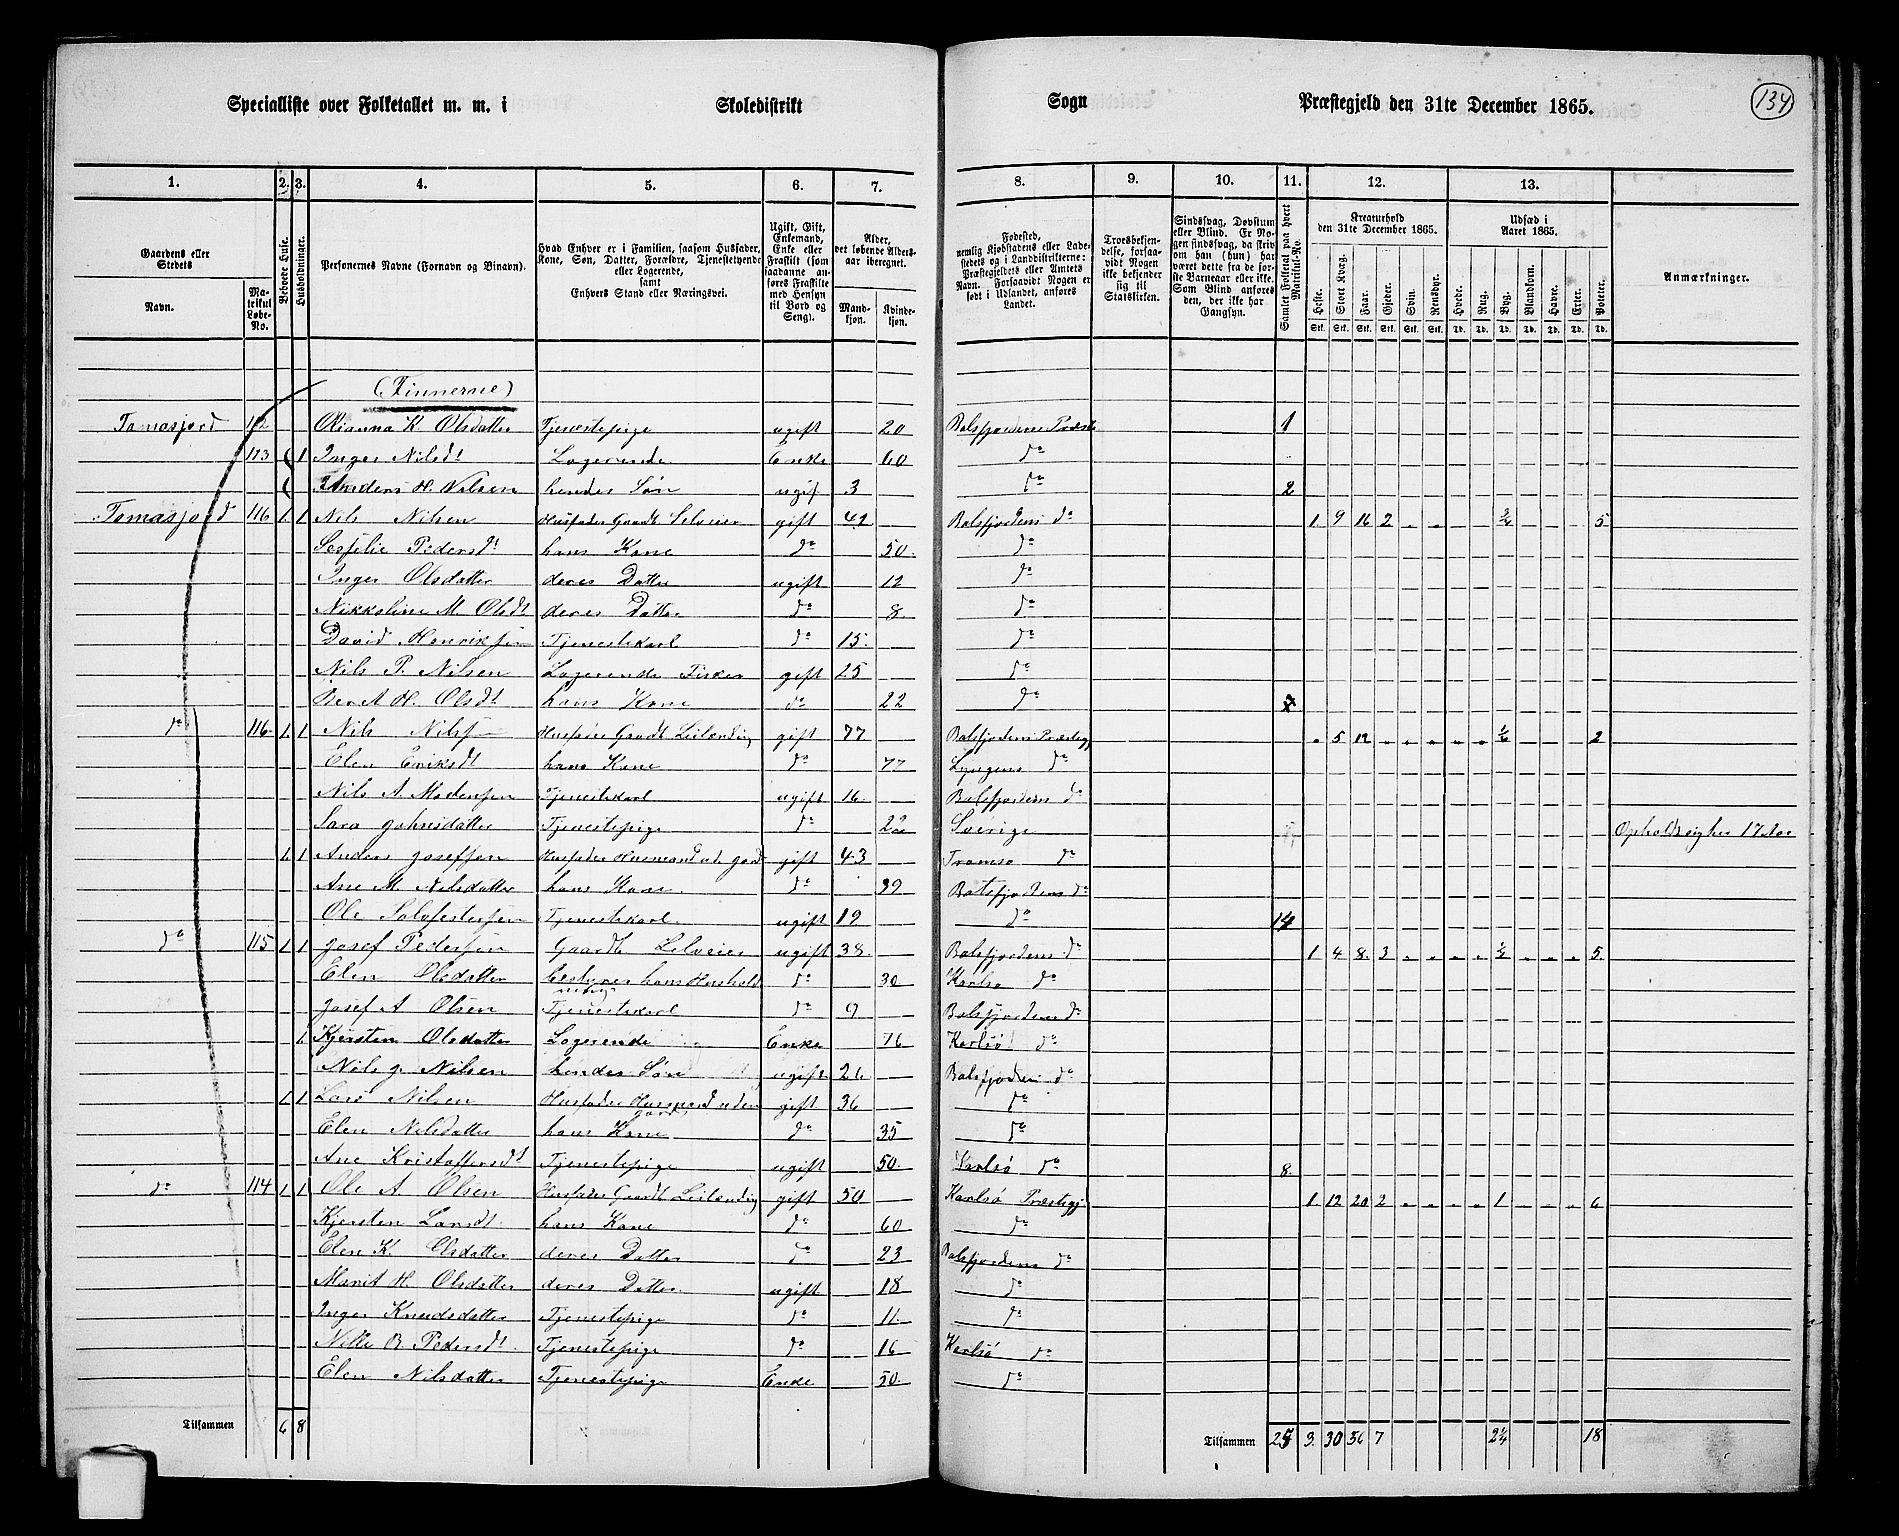 134
Specialliste over Folketallet m. m. i Skoledistrikt Sogn Præstegjeld den 31te December 1865.
1. 2. 3. 4. 5. 6. 7. 8. 9. 10. 11. 12. 13.
Gaardens eller Stedets
Navn.
Matrikul Løbe-No.
Beboede Huse.
Husholdninger.
Personernes Navne (Fornavn og Binavn).
Hvad Enhver er i Familien, saasom Husfader, Kone, Søn, Datter, Forældre, Tjenestetyende eller Logerende, samt Enhvers Stand eller Næringsvei.
Ugift, Gift, Enkemand, Enke eller Fraskilt (som saadanne anføres Fraskilte med Hensyn til Bord og Seng).
Alder, det løbende Aldersaar iberegnet.
Mandkjøn. Kvindekjøn.
Fødested, nemlig Kjøbstadens eller Ladestedets og i Landdistrikterne: Præstegjeldets eller Amtets Navn. Forsaavidt Nogen er født i Udlandet, anføres Landet.
Troesbekjendelse, forsaavidt Nogen ikke bekjender sig til Statskirken.
Sindssvag, Døvstum eller Blind. Er Nogen sindssvag, da skrives om han (hun) har været dette fra de første Barneaar eller ikke. Som Blind anføres den, der ikke har Gangsyn.
Samlet Folketal paa hvert Matrikul-No.
Kreaturhold den 31te December 1865.
Udsæd i Aaret 1865.
Heste. Stort Kvæg. Faar. Gjeder. Svin. Rensdyr. Hvede. Rug. Byg. Blandkorn. Havre. Erter. Poteter.
Stk. Stk. Stk. Stk. Stk. Stk. Td. Td. Td. Td. Td. Td. Td.
Anmærkninger.
(Finnerne)
Tomasjord 112 Olianna K Olsdatter Tjenestepige ugift 20 Balsfjordens Præste 1
113 1 Inger Nilsdt Logerende Enke 60 do
Anders H. Nilsen hendes Søn ugift 3 do 2
Tomasjord 116 1 1 Nils Nilsen Husfader Gaardb Selveier gift 42 Balsfjordens do 1 9 16 2 3/4 5
Pedersdt hans Kone do 50 do
Inger Olsdatter deres Datter ugift 12 do
Nikkoline M Olsdt deres Datter do 8 do
David Henriksen Tjenestekarl do 15 do
Nils P. Nilsen Logerende Fisker gift 25 do
Berit H. Olsdt hans Kone do 22 do 7
do 116 1 1 Nils Nilsen Husfader Gaardb Leilænding gift 77 Balsfjordens Præstegj 5 12 2
Elen Eriksdt hans Kone do 77 Lyngens do
Nils A. Tjenestekarl ugift 16 Balsfjordens do
Sara Johnsdatter Tjenestepige do 22 Sverige
1 1 Anders Josefsen Husfader Husmand gift 43 Tromsø do
Ane M. Nilsdatter hans Kone do 39 Balsfjordens do
Ole Tjenestekarl ugift 19 do 14
do 115 1 1 Josef Pedersen Gaardb Selveier ugift 38 Balsfjordens do 1 4 8 3 1/2 5
Elen Olsdatter bestyrer hans Husholdning do 30 Karlsø do
Josef A Olsen Tjenestekarl do 9 Balsfjorden do
1 Kjersten Olsdatter Logerende Enke 76 Karlsø do
Nils J. Nilsen hendes Søn ugift 26 Balsfjorden do
1 1 Lars Nilsen Husfader Husmand uden Jord gift 36 do
Elen Nilsdatter hans Kone do 35 do
Ane Kristoffersdt Tjenestepige ugift 50 Karlsø do 8
do 114 1 1 Ole A Olsen Husfader Gaardb Leilænding gift 50 Karlsø Præstegj 1 12 20 2 1 6
Kjersten Larsdt hans Kone do 60 do
Elen K Olsdatter deres Datter do 23 Balsfjordens do
Marit H. Olsdatter deres Datter ugift 18 do
Inger Knudsdatter Tjenestepige do 11 do
B. Pedersdt Tjenestepige do 16 Karlsø do
Elen Nilsdatter Tjenestepige Enke 50 do
Tilsammen 6 8
Tilsammen 3 30 56 7 2 1/4 18